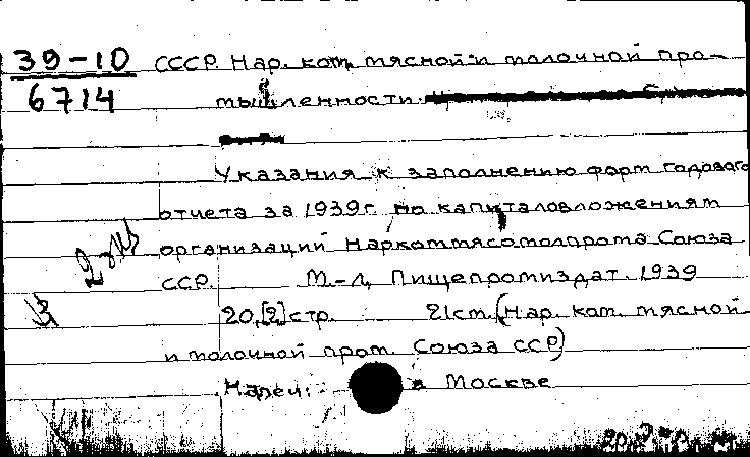 39-10 СССР. Нар. ком. мясной и молочной про-
6714 мышленности.
Указания к заполнению форм годового
отчета за 1939 г. по капиталовложениям
организаций Наркоммясомолпрома Союза
ССР. М.-Л, Пищепромиздат. 1939
20,[2] стр. 21 см. (Нар. ком. мясной
и молочной пром. Союза ССР)
Напеч.: в Москве